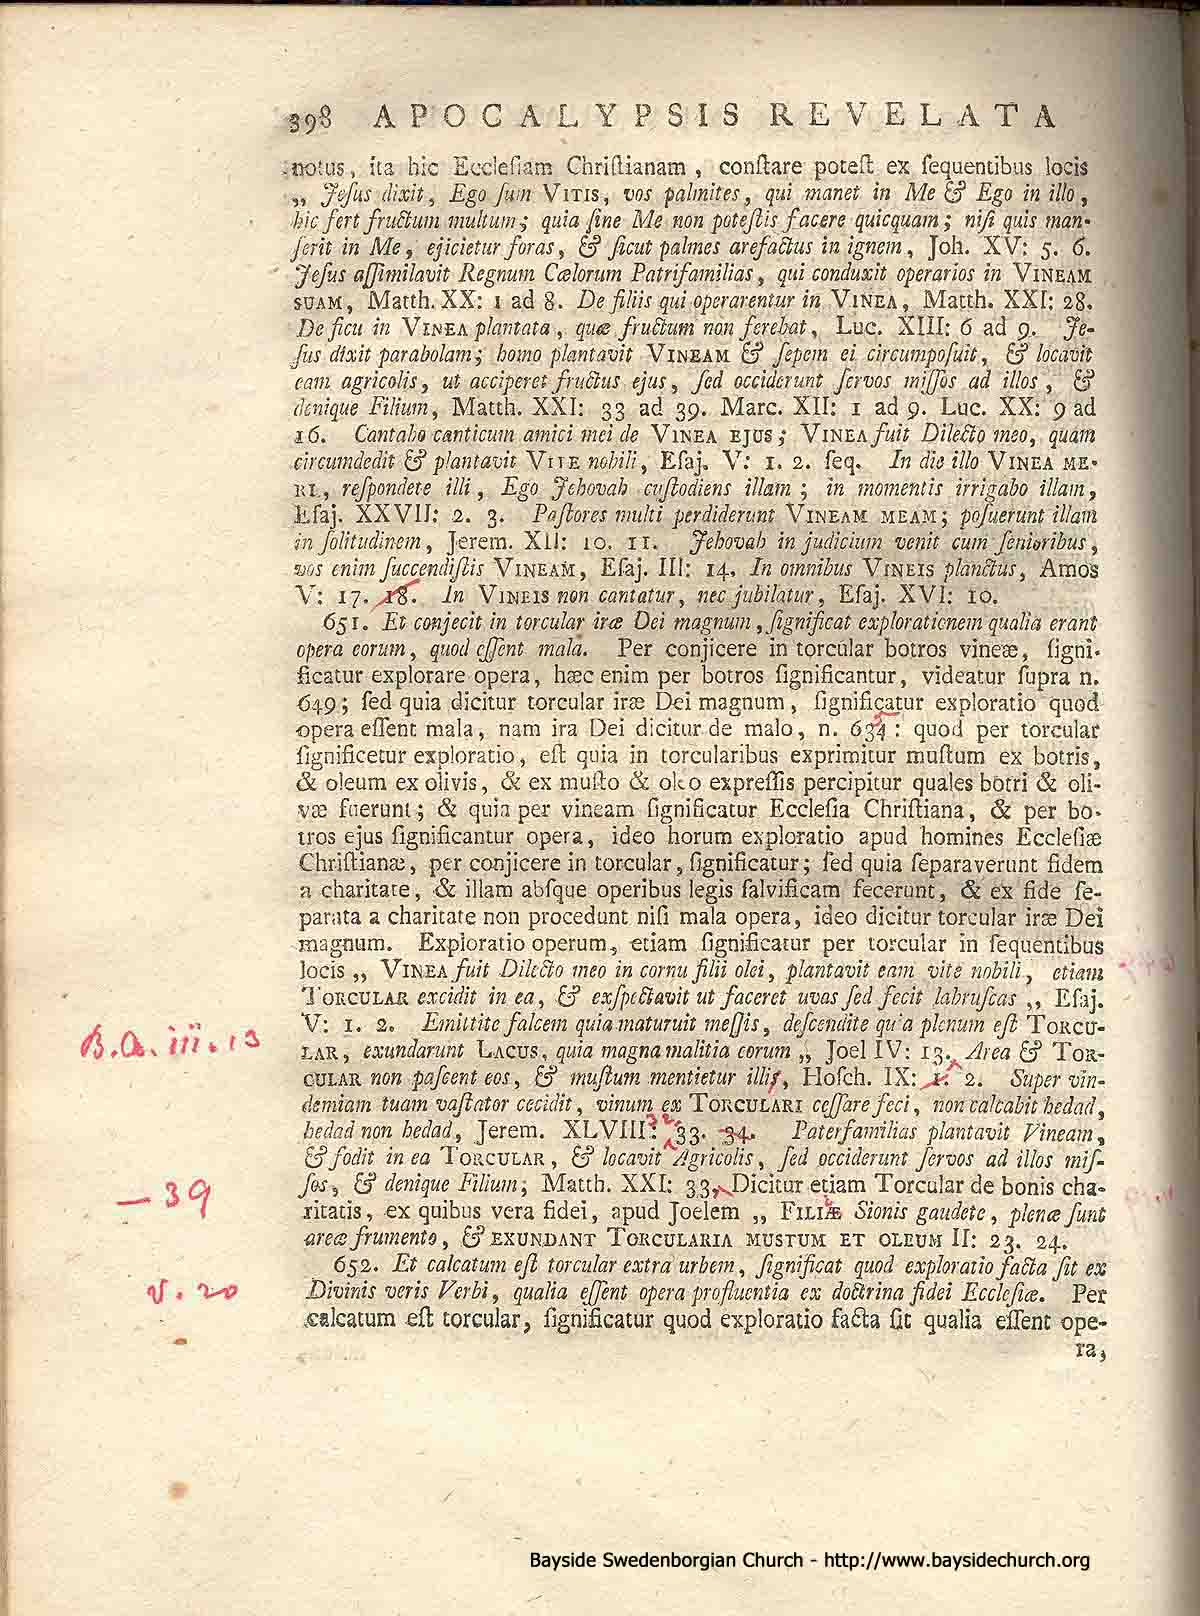 398 APOCALYPSIS REVELATA
notus, ita hic Ecclesiam Christianam, constare potest ex sequentibus locis
„ Jesus dixit, Ego sum VITIS, vos palmites, qui manet in Me & Ego in illo,
hic fert fructum multum; quia sine Me non potestis facere quicquam; nisi quis man-
serit in Me, ejicietur foras, & sicut palmes arefactus in ignem, Joh. XV: 5. 6.
Jesus assimilavit Regnum Cælorum Patrifamilias, qui conduxit operarios in VINEAM
SUAM, Matth. XX: 1 ad 8. De filiis qui operarentur in VINEA, Matth. XXI: 28.
De ficu in VINEA plantata, quæ fructum non ferebat, Luc. XIII: 6 ad 9. Je-
sus dixit parabolam; homo plantavit VINEAM & sepem ei circumposuit, & locavit
eam agricolis, ut acciperet fructus ejus, sed occiderunt servos missos ad illos, &
denique Filium, Matth. XXI: 33 ad 39. Marc. XII: 1 ad 9. Luc. XX: 9 ad
16. Cantabo canticum amici mei de VINEA EJUS; VINEA fuit Dilecto meo, quam
circumdedit & plantavit VITE nobili, Esaj. V: 1. 2. seq. In die illo VINEA ME-
RI, respondete illi, Ego Jehovah custodiens illam; in momentis irrigabo illam,
Esaj. XXVII: 2. 3. Pastores multi perdiderunt VINEAM MEAM; posuerunt illam
in solitudinem, Jerem. XII: 10. 11. Jehovah in judicium venit cum senioribus,
vos enim succendistis VINEAM, Esaj. III: 14. In omnibus VINEIS planctus, Amos
V: 17. 18. In VINEIS non cantatur, nec jubilatur, Esaj. XVI: 10.
651. Et conjecit in torcular iræ Dei magnum, significat explorationem qualia erant
opera eorum, quod essent mala. Per conjicere in torcular botros vineæ, signi-
ficatur explorare opera, hæc enim per botros significantur, videatur supra n.
649; sed quia dicitur torcular iræ Dei magnum, significatur exploratio quod
opera essent mala, nam ira Dei dicitur de malo, n. 634 5: quod per torcular
significetur exploratio, est quia in torcularibus exprimitur mustum ex botris,
& oleum ex olivis, & ex musto & oleo expressis percipitur quales botri & oli-
væ fuerunt; & quia per vineam significatur Ecclesia Christiana, & per bo-
tros ejus significantur opera, ideo horum exploratio apud homines Ecclesiæ
Christianæ, per conjicere in torcular, significatur; sed quia separaverunt fidem
a charitate, & illam absque operibus legis salvificam fecerunt, & ex fide se-
parata a charitate non procedunt nisi mala opera, ideo dicitur torcular iræ Dei
magnum. Exploratio operum, etiam significatur per torcular in sequentibus
locis „ VINEA fuit Dilecto meo in cornu filii olei, plantavit eam vite nobili, etiam
TORCULAR excidit in ea, & exspectavit ut faceret uvas sed fecit labruscas „ Esaj.
V: 1. 2. Emittite falcem quia maturuit messis, descendite quia plenum est TORCU-
B.A. iii. 13
LAR, exundarunt LACUS, quia magna malitia eorum „ Joel IV: 13. Area & TOR-
CULAR non pascent eos, & mustum mentietur illis, Hosch. IX: 1. 2. Super vin-
demiam tuam vastator cecidit, vinum ex TORCULARI cessare feci, non calcabit hedad,
hedad non hedad, Jerem. XLVIII: 32. 33. 34. Paterfamilias plantavit Vineam,
& fodit in ea TORCULAR, & locavit Agricolis, sed occiderunt servos ad illos mis-
— 39
sos, & denique Filium; Matth. XXI: 33, Dicitur etiam Torcular de bonis cha-
ritatis, ex quibus vera fidei, apud Joelem „ FILIÆ Sionis gaudete, plenæ sunt
areæ frumento, & EXUNDANT TORCULARIA MUSTUM ET OLEUM II: 23. 24.
652. Et calcatum est torcular extra urbem, significat quod exploratio facta sit ex
v. 20
Divinis veris Verbi, qualia essent opera profluentia ex doctrina fidei Ecclesiæ. Per
calcatum est torcular, significatur quod exploratio facta sit qualia essent ope-
ra,
Bayside Swedenborgian Church - http://www.baysidechurch.org